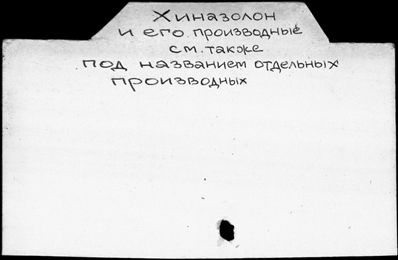 Хиназолон
и его производные
см. также
под названием отдельных
производных